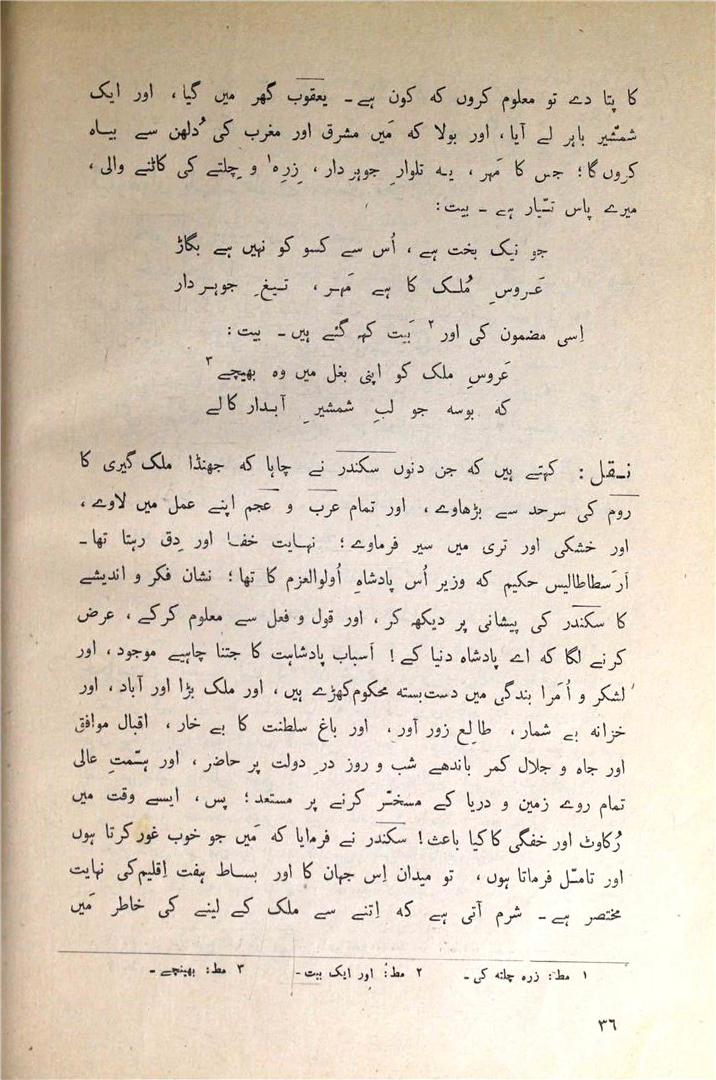 کا پتا دے تو معلوم کروں کہ کون ہے ۔ یعقوب گھر میں گیا ، اور ایک
شمشیر باہر لے آیا ، اور بولا کہ مَیں مشرق اور مغرب کی دُلھن سے بیاہ
کروں گا ؛ جس کا مَہر ، یہ تلوارِ جوہر دار ، زِرہ ۱ و چِلتے کی کاٹنے والی ،
میرے پاس تیّار ہے ۔ بیت :
جو نیک بخت ہے ، اُس سے کسو کو نہیں ہے بگاڑ
عَروسِ مُلک کا ہے مَہر ، تیغِ جوہر دار
اِسی مضمون کی اور ۲ بَیت کہہ گئے ہیں ۔ بیت :
عَروسِ ملک کو اپنی بغل میں وہ بھیچے ۳
کہ بوسہ جو لبِ شمشیرِ آبدار کا لے
نقل : کہتے ہیں کہ جن دنوں سکندر نے چاہا کہ جھنڈا ملک گیری کا
روم کی سرحد سے بڑھاوے ، اور تمام عرب و عجم اپنے عمل میں لاوے ،
اور خشکی اور تری میں سیر فرماوے ؛ نہایت خفا اور دِق رہتا تھا ۔
اَرَسطاطالیس حکیم کہ وزیر اُس پادشاہِ اُولوالعزم کا تھا ؛ نشان فکر و اندیشے
کا سکندر کی پیشانی پر دیکھ کر ، اور قول و فعل سے معلوم کرکے ، عرض
کرنے لگا کہ اے پادشاہ دنیا کے ! اَسباب پادشاہت کا جتنا چاہیے موجود ، اور
لشکر و اُمَرا بندگی میں دست بستہ محکوم کھڑے ہیں ، اور ملک بڑا اور آباد ، اور
خزانہ بے شمار ، طالِع زور آور ، اور باغ سلطنت کا بے خار ، اقبال موافق
اور جاہ و جلال کمر باندھے شب و روز درِ دولت پر حاضر ، اور ہمّتِ عالی
تمام روے زمین و دریا کے مسخّر کرنے پر مستعد ؛ پس ، ایسے وقت میں
رُکاوٹ اور خفگی کا کیا باعث ! سکندر نے فرمایا کہ مَیں جو خوب غور کرتا ہوں
اور تامّل فرماتا ہوں ، تو میدان اِس جہان کا اور بساط ہفت اِقلیم کی نہایت
مختصر ہے ۔ شرم آتی ہے کہ اِتنے سے ملک کے لینے کی خاطر مَیں
۱ مط : زرہ چلتہ کی ۔ ۲ مط : اور ایک بیت ۔ ۳ مط : بھینچے ۔
۳۶